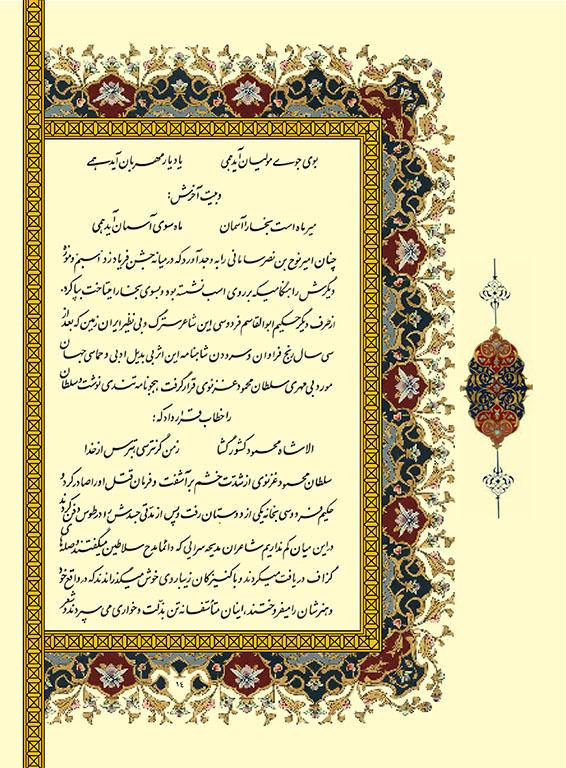 بوی جوی مولیان آید همی یاد یار مهربان آید همی
و بیت آخرش:
میر ماه است بخارا آسمان ماه سوی آسمان آید همی
چنان امیر نوح بن نصر سامانی را به وجد آورد که در میانه جشن فریاد زد اسبم و موزهٔ
دیگرش را هنگامیکه بر روی اسب نشسته بود و بسوی بخارا میتاخت بپا کرد.
از طرف دیگر حکیم ابوالقاسم فردوسی این شاعر سترک و بی نظیر ایران زمین که بعد از
سی سال رنج فراوان و سرودن شاهنامه این اثر بی بدیل ادبی و حماسی جهان
مورد بی مهری سلطان محمود غزنوی قرار گرفت، هجونامه تندی نوشت و سلطان
را خطاب قرار داد که:
الا شاه محمود کشور گشا زمن گر نترسی بترس از خدا
سلطان محمود غزنوی از شدت خشم بر آشفت و فرمان قتل او را صادر کرد و
حکیم فردوسی بخانه یکی از دوستان رفت و پس از مدتی جسدش را در طوس دفن کردند
در این میان کم نداریم شاعران مدیحه سرایی که دائما مدح سلاطین میگفتند و صله‌های
گزاف دریافت میکردند و با کنیزکان زیباروی خوش میگذراندند که در واقع خود
و هنرشان را میفروختند، اینان متأسفانه تن بذلت و خواری می سپردند و شعر
۲۴